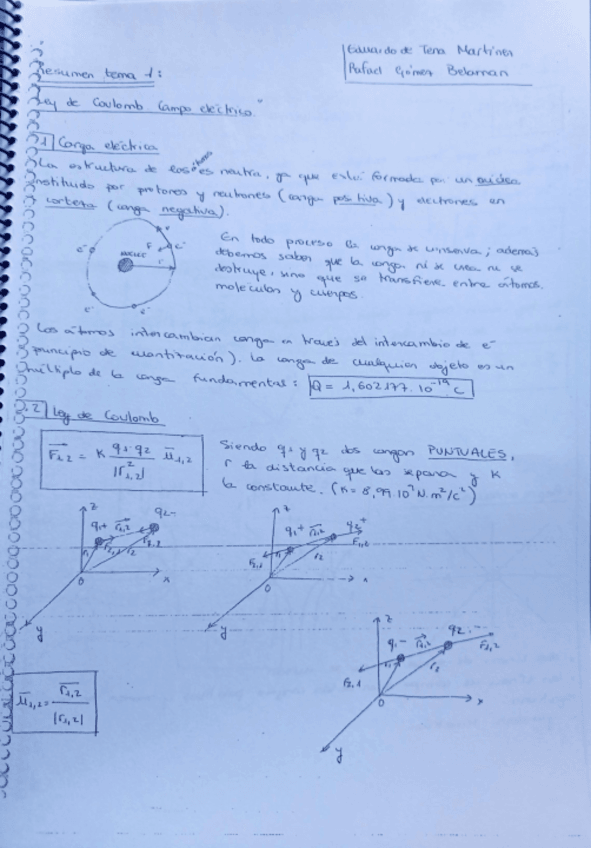 Eduardo de Tena Martínez
Rafael Gómez Belaman
Resumen tema 1:
Ley de Coulomb Campo eléctrico"
1 Carga eléctrica
La estructura de los átomos es neutra, ya que está formada por un núcleo
constituido por protones y neutrones (carga positiva) y electrones en
corteza (carga negativa).
En todo proceso la carga se conserva; además
debemos saber que la carga ni se crea ni se
destruye, sino que se transfiere entre átomos,
moléculas y cuerpos.
NÚCLEO
e⁻
F
r
Los átomos intercambian carga a través del intercambio de e⁻
(principio de cuantización). La carga de cualquier objeto es un
múltiplo de la carga fundamental: Q = 1,602177·10⁻¹⁹ C
1.2 Ley de Coulomb
F₁,₂ = K q₁·q₂ / |r²₁,₂| u₁,₂
Siendo q₁ y q₂ dos cargas PUNTUALES,
r la distancia que las separa y K
la constante. (K = 8,99·10⁹ N·m²/C²)
z q₁+ r₁,₂ q₂- r₁ r₂ 0 x y
z q₁+ r₁,₂ q₂+ F₁,₂ F₂,₁ r₁ r₂ 0 x y
z q₁- r₁,₂ q₂- F₁,₂ F₂,₁ r₁ r₂ 0 x y
u₁,₂ = r₁,₂ / |r₁,₂|